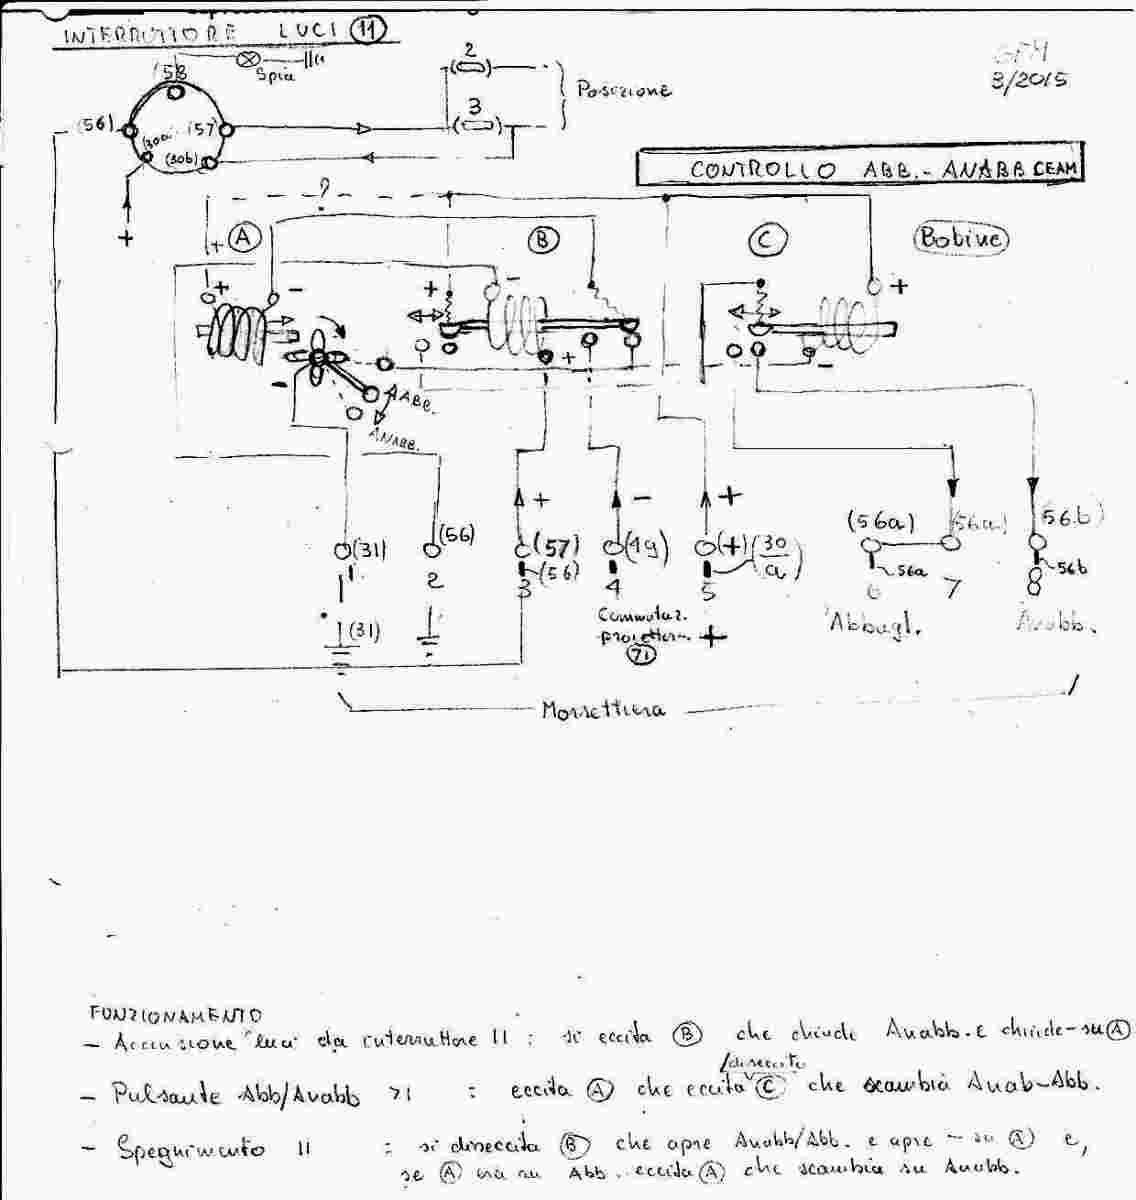 INTERRUTTORE LUCI 11
(58
Spia
2
3
Posizione
GFM
3/2015
(56)
(57)
(30a)
(30b)
+
CONTROLLO ABB.- ANABB CEAM
?
+ A
B
C
Bobine
+ -
+ -
+
+
-
-
AABB.
ANABB.
+ - +
(31)
(56)
(57)
(49)
(+) (30/a)
(56a)
(56a)
(56b)
(56)
56a
56b
1 2 3 4 5 6 7 8
(31)
Commutaz.
proiettori +
71
Abbagl.
Anabb.
Morsettiera
FUNZIONAMENTO
- Accensione luci da interruttore 11 : si eccita B che chiude Anabb. e chiude - su A
/diseccita
- Pulsante Abb/Anabb 71 : eccita A che eccita C che scambia Anab-Abb.
- Spegnimento 11 : si diseccita B che apre Anabb/Abb. e apre - su A e,
se A era su Abb. eccita A che scambia su Anabb.